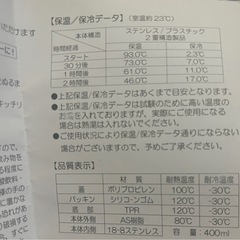 【保温/保冷データ】(室温約23℃)
本体構造 ステンレス/プラスチック 2重構造製品
時間経過 保温 保冷
スタート 93.0℃ 2.3℃
30分後 73.0℃ 7.0℃
1時間後 61.0℃ 11.0℃
2時間後 46.0℃ 17.0℃
●上記保温/保冷データはあくまで目安となります。
●上記保温/保冷データは試験のために高い温度の
お湯を入れておりますが、実際にご使用になる
場合は熱湯は入れないでください。
●ご使用状況により保温/保冷データ通りにならない
場合がございますので、予めご了承ください。
【品質表示】
部品 材質 耐熱温度 耐冷温度
蓋 ポリプロピレン 100℃ -30℃
パッキン シリコーンゴム 120℃ -30℃
底部 TPR 120℃ -30℃
本体内側 AS樹脂 80℃ -30℃
本体外側 18-8ステンレス 容量:400ml
いただけます
ーに!
ぬるま
キッチリ